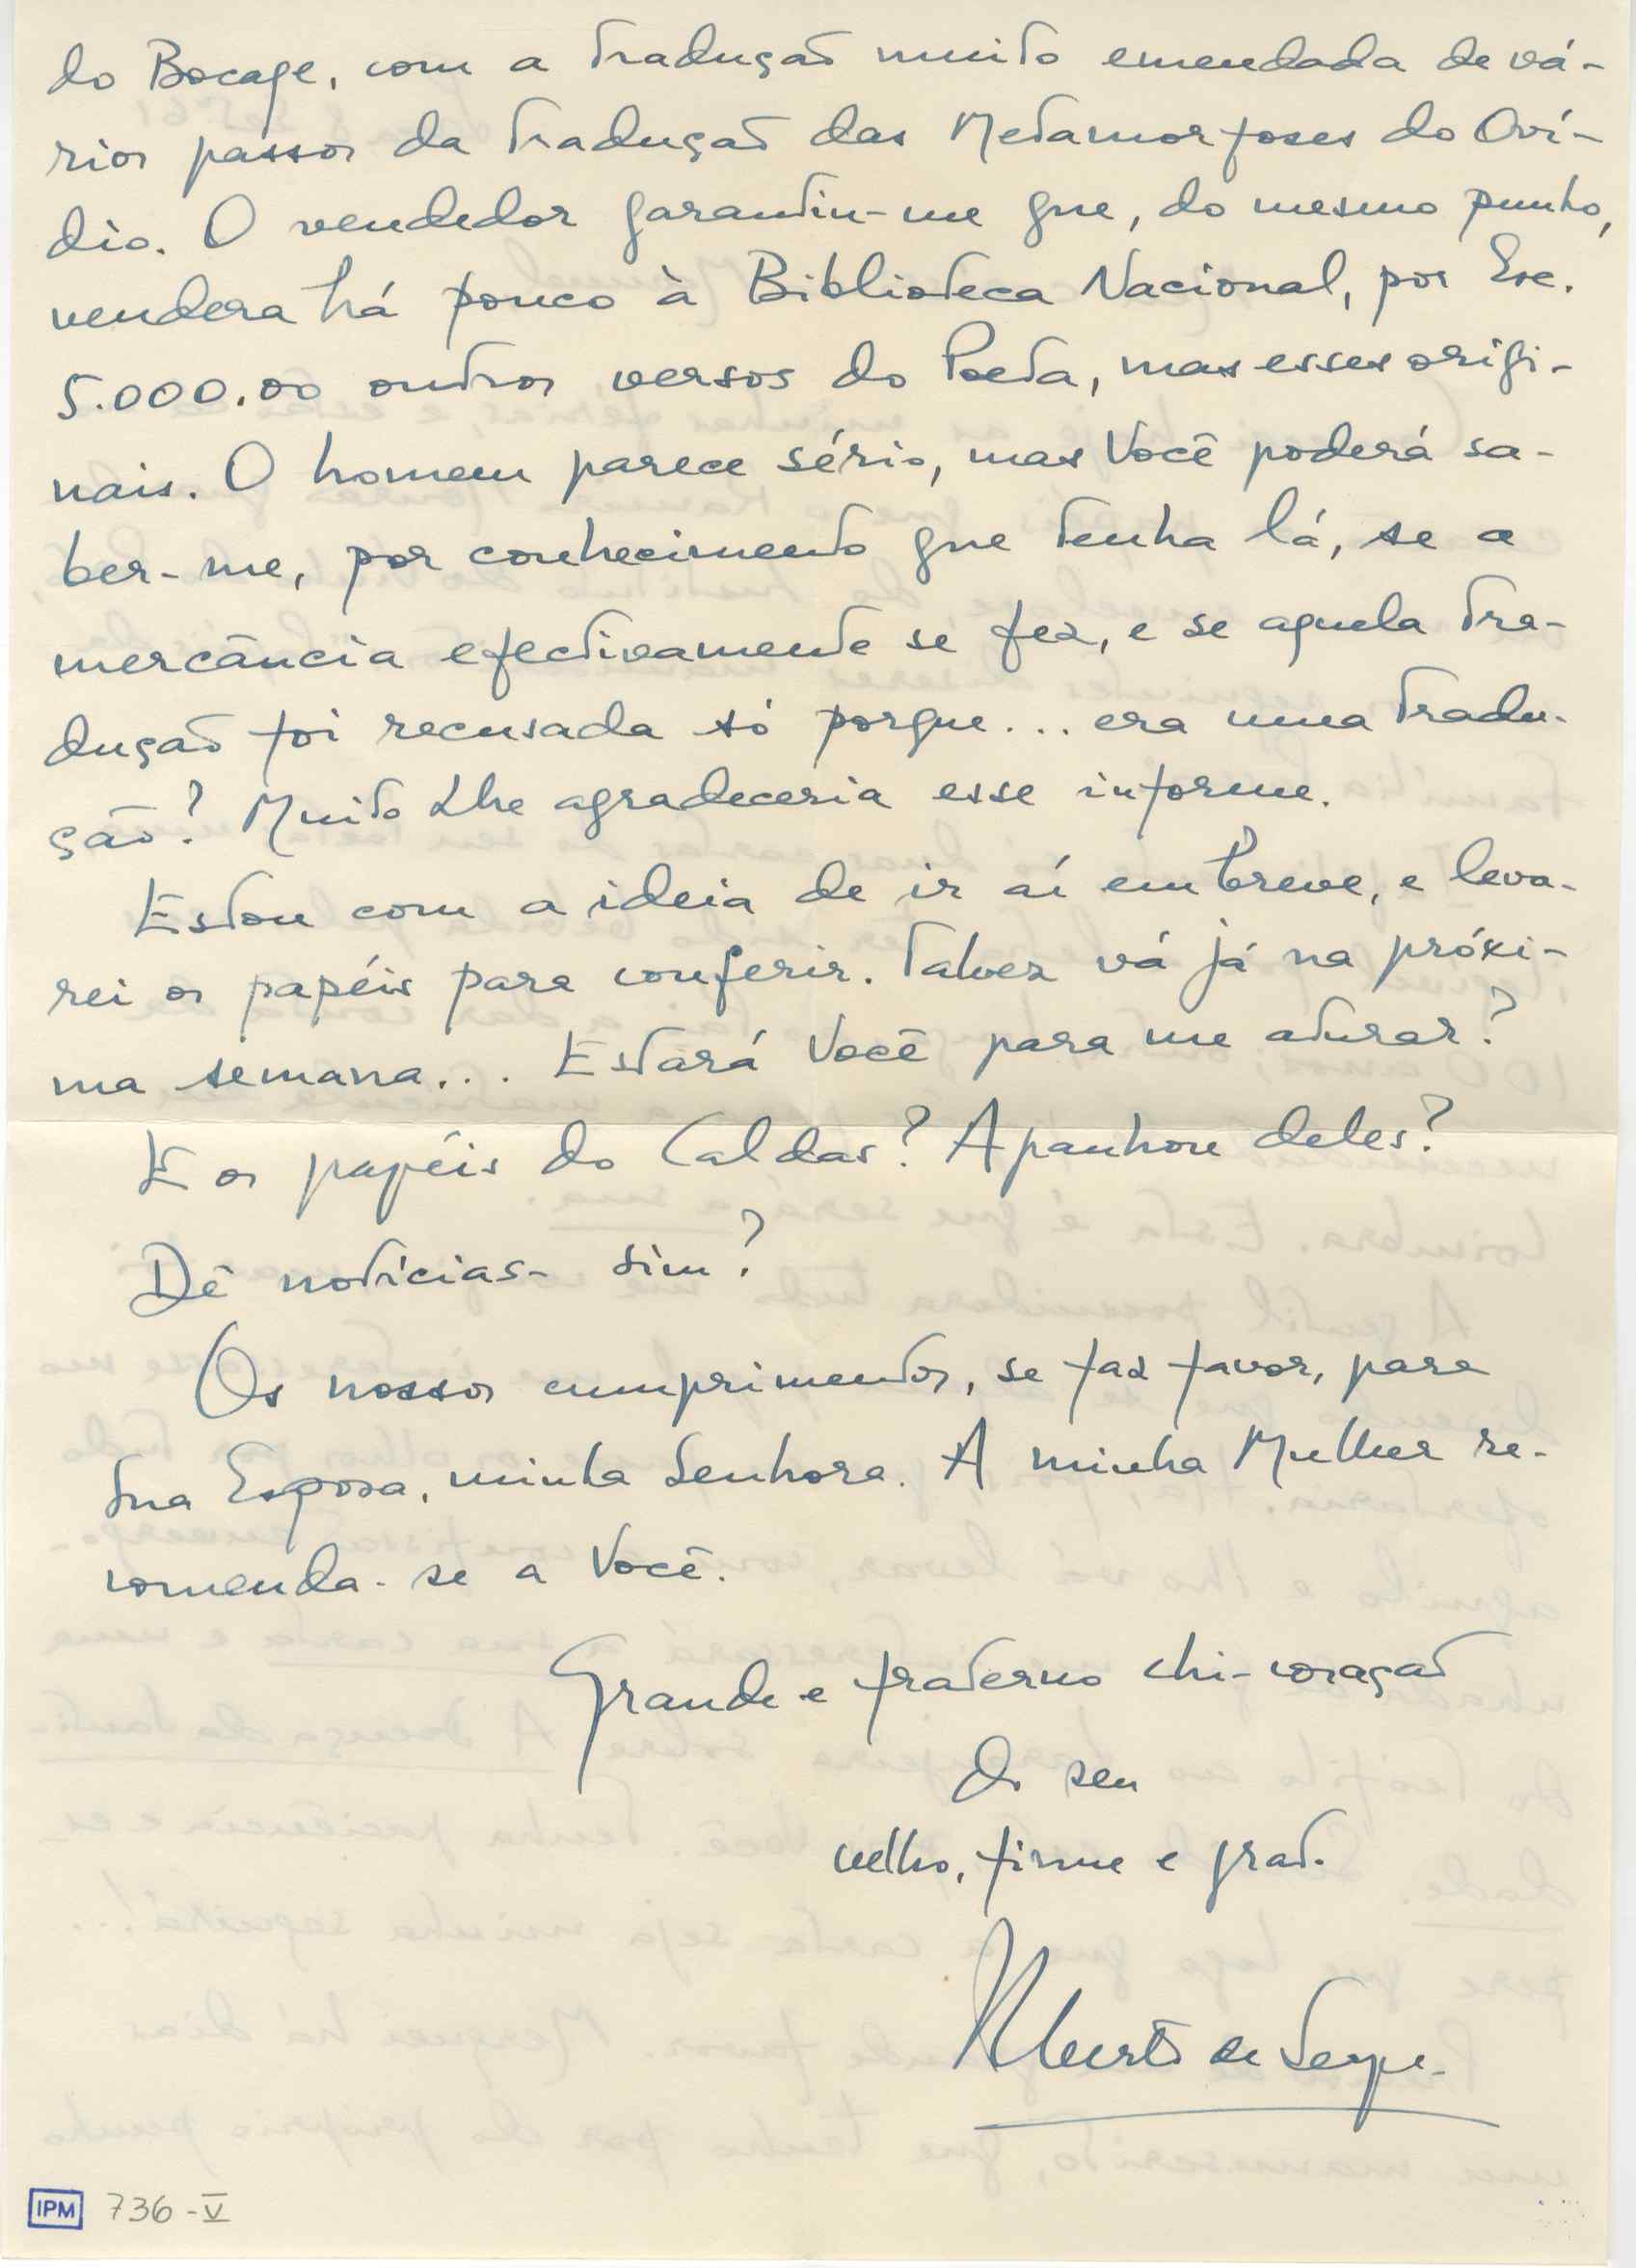 do Bocage, com a tradução muito emendada de vá-
rios passos da tradução das Metamorfoses do Oví-
dio. O vendedor garantiu-me que, do mesmo punho,
vendera há pouco à Biblioteca Nacional, por Esc.
5.000.00 outros versos do Poeta, mas esses origi-
nais. O homem parece sério, mas Você poderá sa-
ber-me, por conhecimento que tenha lá, se a
mercância efectivamente se fez, e se aquela tra-
dução foi recusada só porque... era uma tradu-
ção? Muito Lhe agradeceria esse informe.
Estou com a ideia de ir aí em breve, e leva-
rei os papéis para conferir. Talvez vá já na próxi-
ma semana... Estará Você para me aturar?
E os papéis do Caldas? Apanhou deles?
Dê notícias- sim?
Os nossos cumprimentos, se faz favor, para
Sua Esposa, minha Senhora. A minha Mulher re-
comenda-se a Você.
Grande e fraterno chi-coração
do seu
velho, firme e grat.
Alberto de Serpa-
IPM 736-V